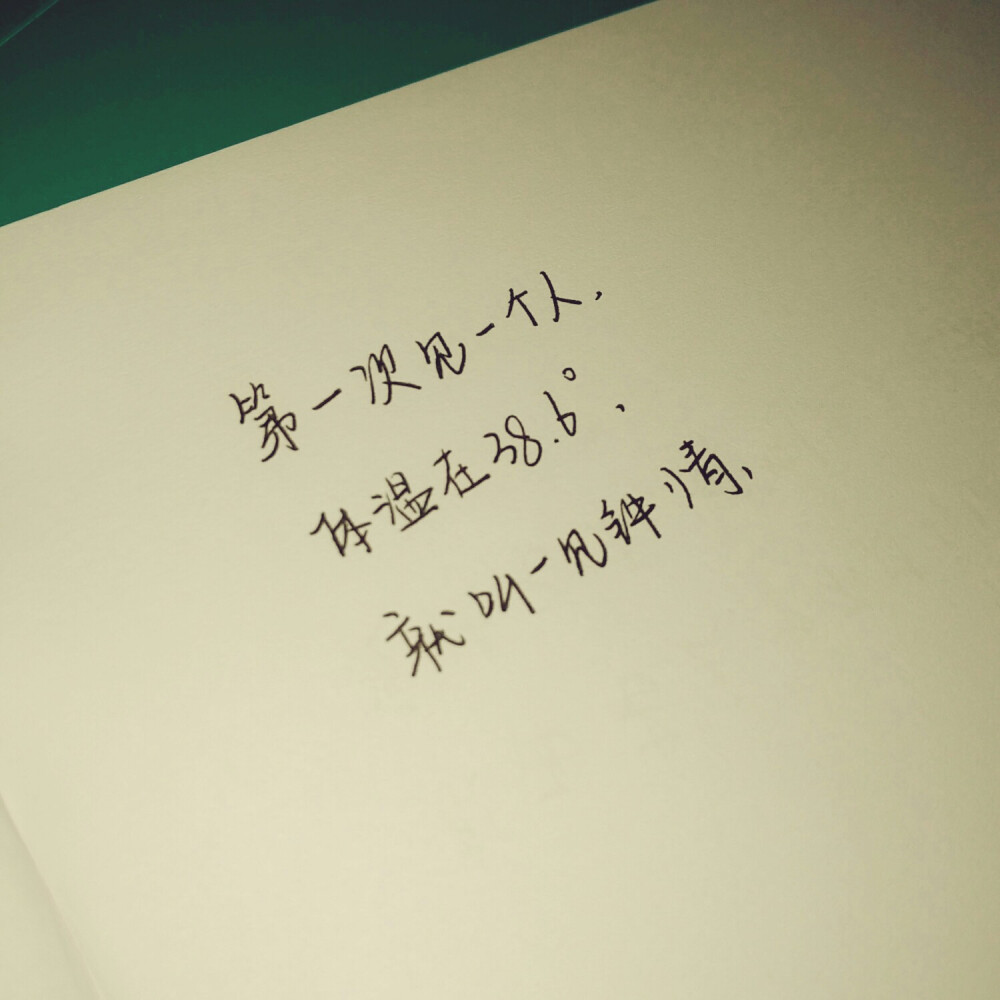 第一次见一个人，
体温在38.6°，
就叫一见钟情、